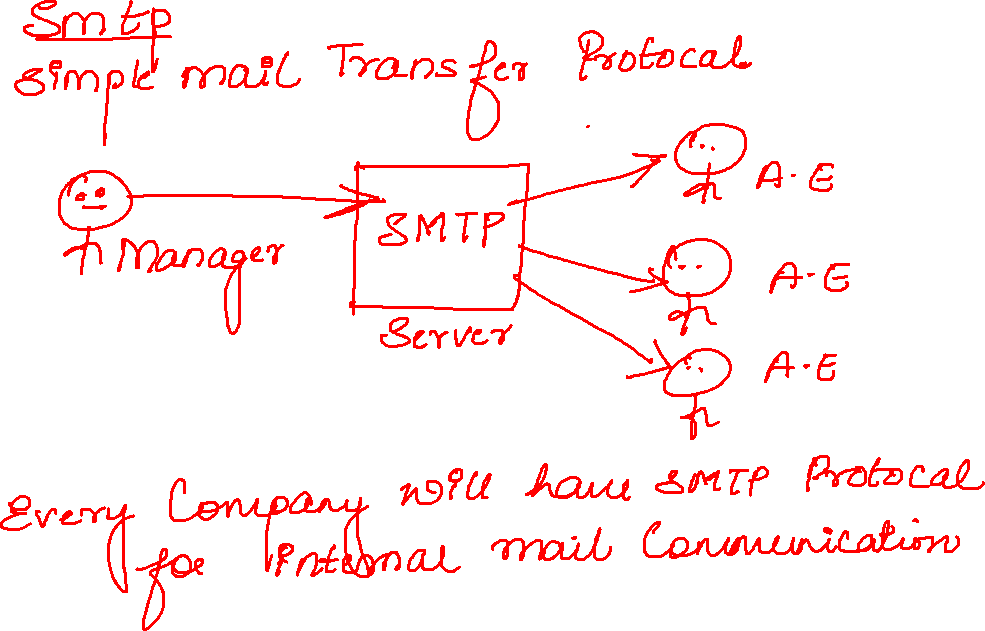 Smtp
Simple mail Transfer Protocal
A.E
SMTP
Manager
A-E
Server
A-E
Every Company will have SMTP Protocal
for internal mail Communication